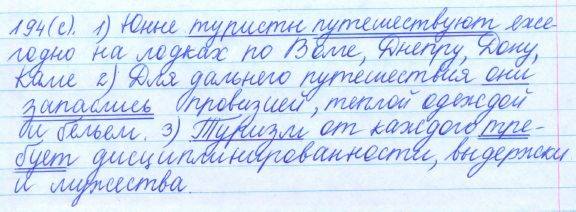 194(с). 1) Юные туристы путешествуют еже-
годно на лодках по Волге, Днепру, Дону,
Каме 2) Для дальнего путешествия они
запаслись провизией, теплой одеждой
и бельем. 3) Туризм от каждого тре-
бует дисциплинированности, выдержки
и мужества.